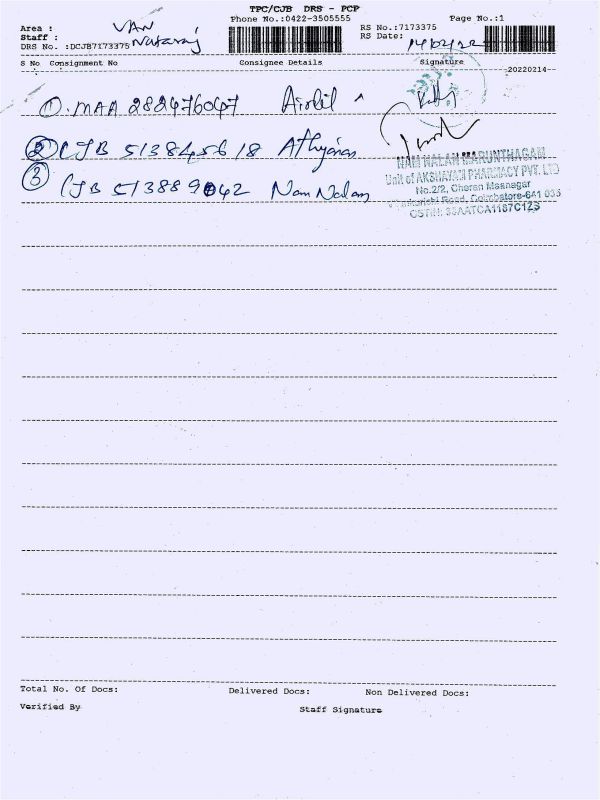 TPC/CJB DRS - PCP
Phone No.:0422-3505555
Page No.:1
Area : VAN
Staff : Nataraj
DRS No. :DCJB7173375
RS No.:7173375
RS Date: 14/02/22
20220214
S No Consignment No Consignee Details Signature
1. MAA 282476047
2 CJB 513845618
3 CJB 513889042 Nam Nalam
NAM NALAM MARUNTHAGAM
Unit of AKSHAYAM PHARMACY PVT. LTD
No.2/2, Cheran Maanagar
Road, Coimbatore-641 035
GSTIN: 33AATCA1167C1ZS
Total No. Of Docs: Delivered Docs: Non Delivered Docs:
Verified By Staff Signature